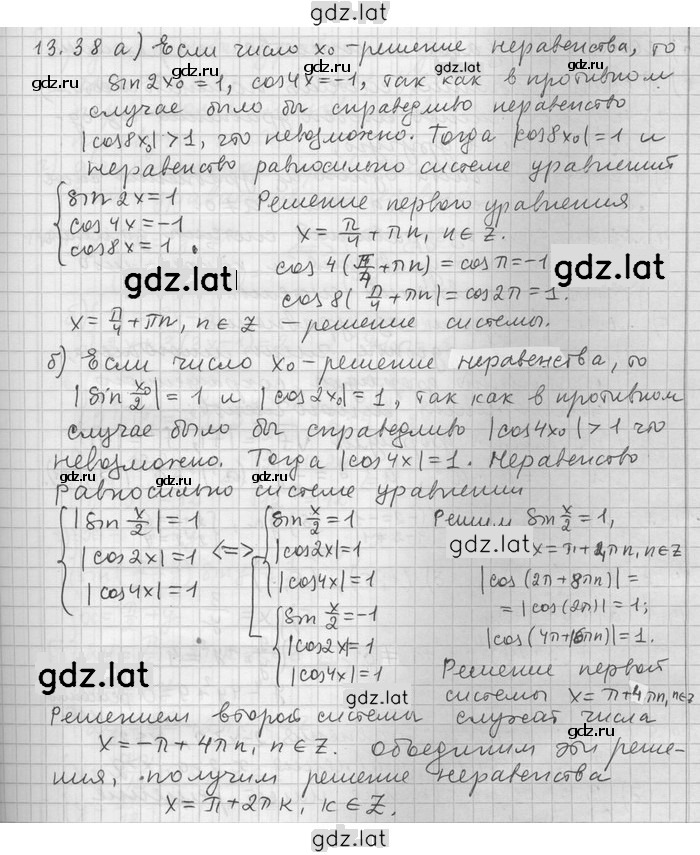 gdz.lat
13.38 а) Если число x₀ - решение неравенства, то
sin2x₀ = 1, cos4x = -1, так как в противном
случае было бы справедливо неравенство
|cos8x₀| > 1, что невозможно. Тогда |cos8x₀| = 1 и
неравенство равносильно системе уравнений
{ sin2x = 1
cos4x = -1
cos8x = 1.
Решение первого уравнения
x = π/4 + πn, n ∈ Z.
cos4(π/4 + πn) = cosπ = -1
gdz.lat
gdz.lat
cos8(π/4 + πn) = cos2π = 1.
x = π/4 + πn, n ∈ Z - решение системы.
б) Если число x₀ - решение неравенства, то
|sin x₀/2| = 1 и |cos2x₀| = 1, так как в противном
случае было бы справедливо |cos4x₀| > 1 что
невозможно. Тогда |cos4x| = 1. Неравенство
равносильно системе уравнении
{ |sin x/2| = 1
|cos2x| = 1
|cos4x| = 1
<=>
[ { sin x/2 = 1
|cos2x| = 1
|cos4x| = 1
{ sin x/2 = -1
|cos2x| = 1
|cos4x| = 1
Решим sin x/2 = 1,
gdz.lat
x = π + 4πn, n ∈ Z
|cos(2π + 8πn)| =
= |cos(2π)| = 1;
|cos(4π + 16πn)| = 1.
gdz.lat
gdz.lat
Решение первой
системы x = π + 4πn, n ∈ Z
Решением второй системы служат числа
x = -π + 4πn, n ∈ Z. Объединим эти реше-
ния, получим решение неравенства
x = π + 2πk, k ∈ Z.
gdz.lat